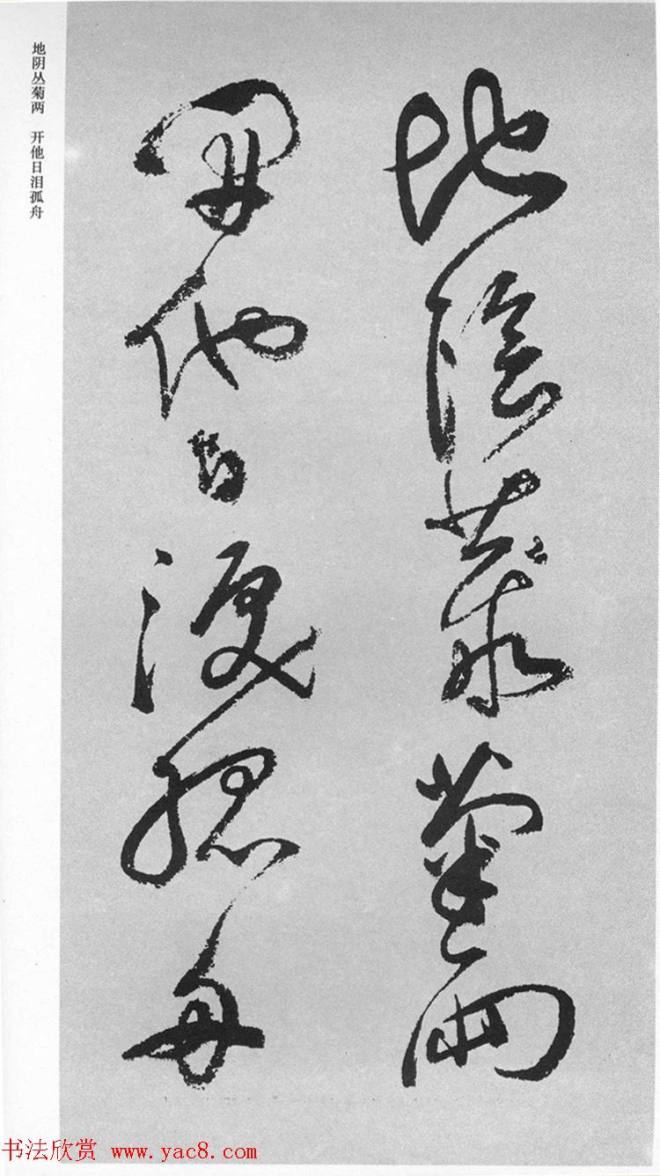 地陰藂菊兩
開他日淚孤舟
地阴丛菊两 开他日泪孤舟
书法欣赏 www.yac8.com